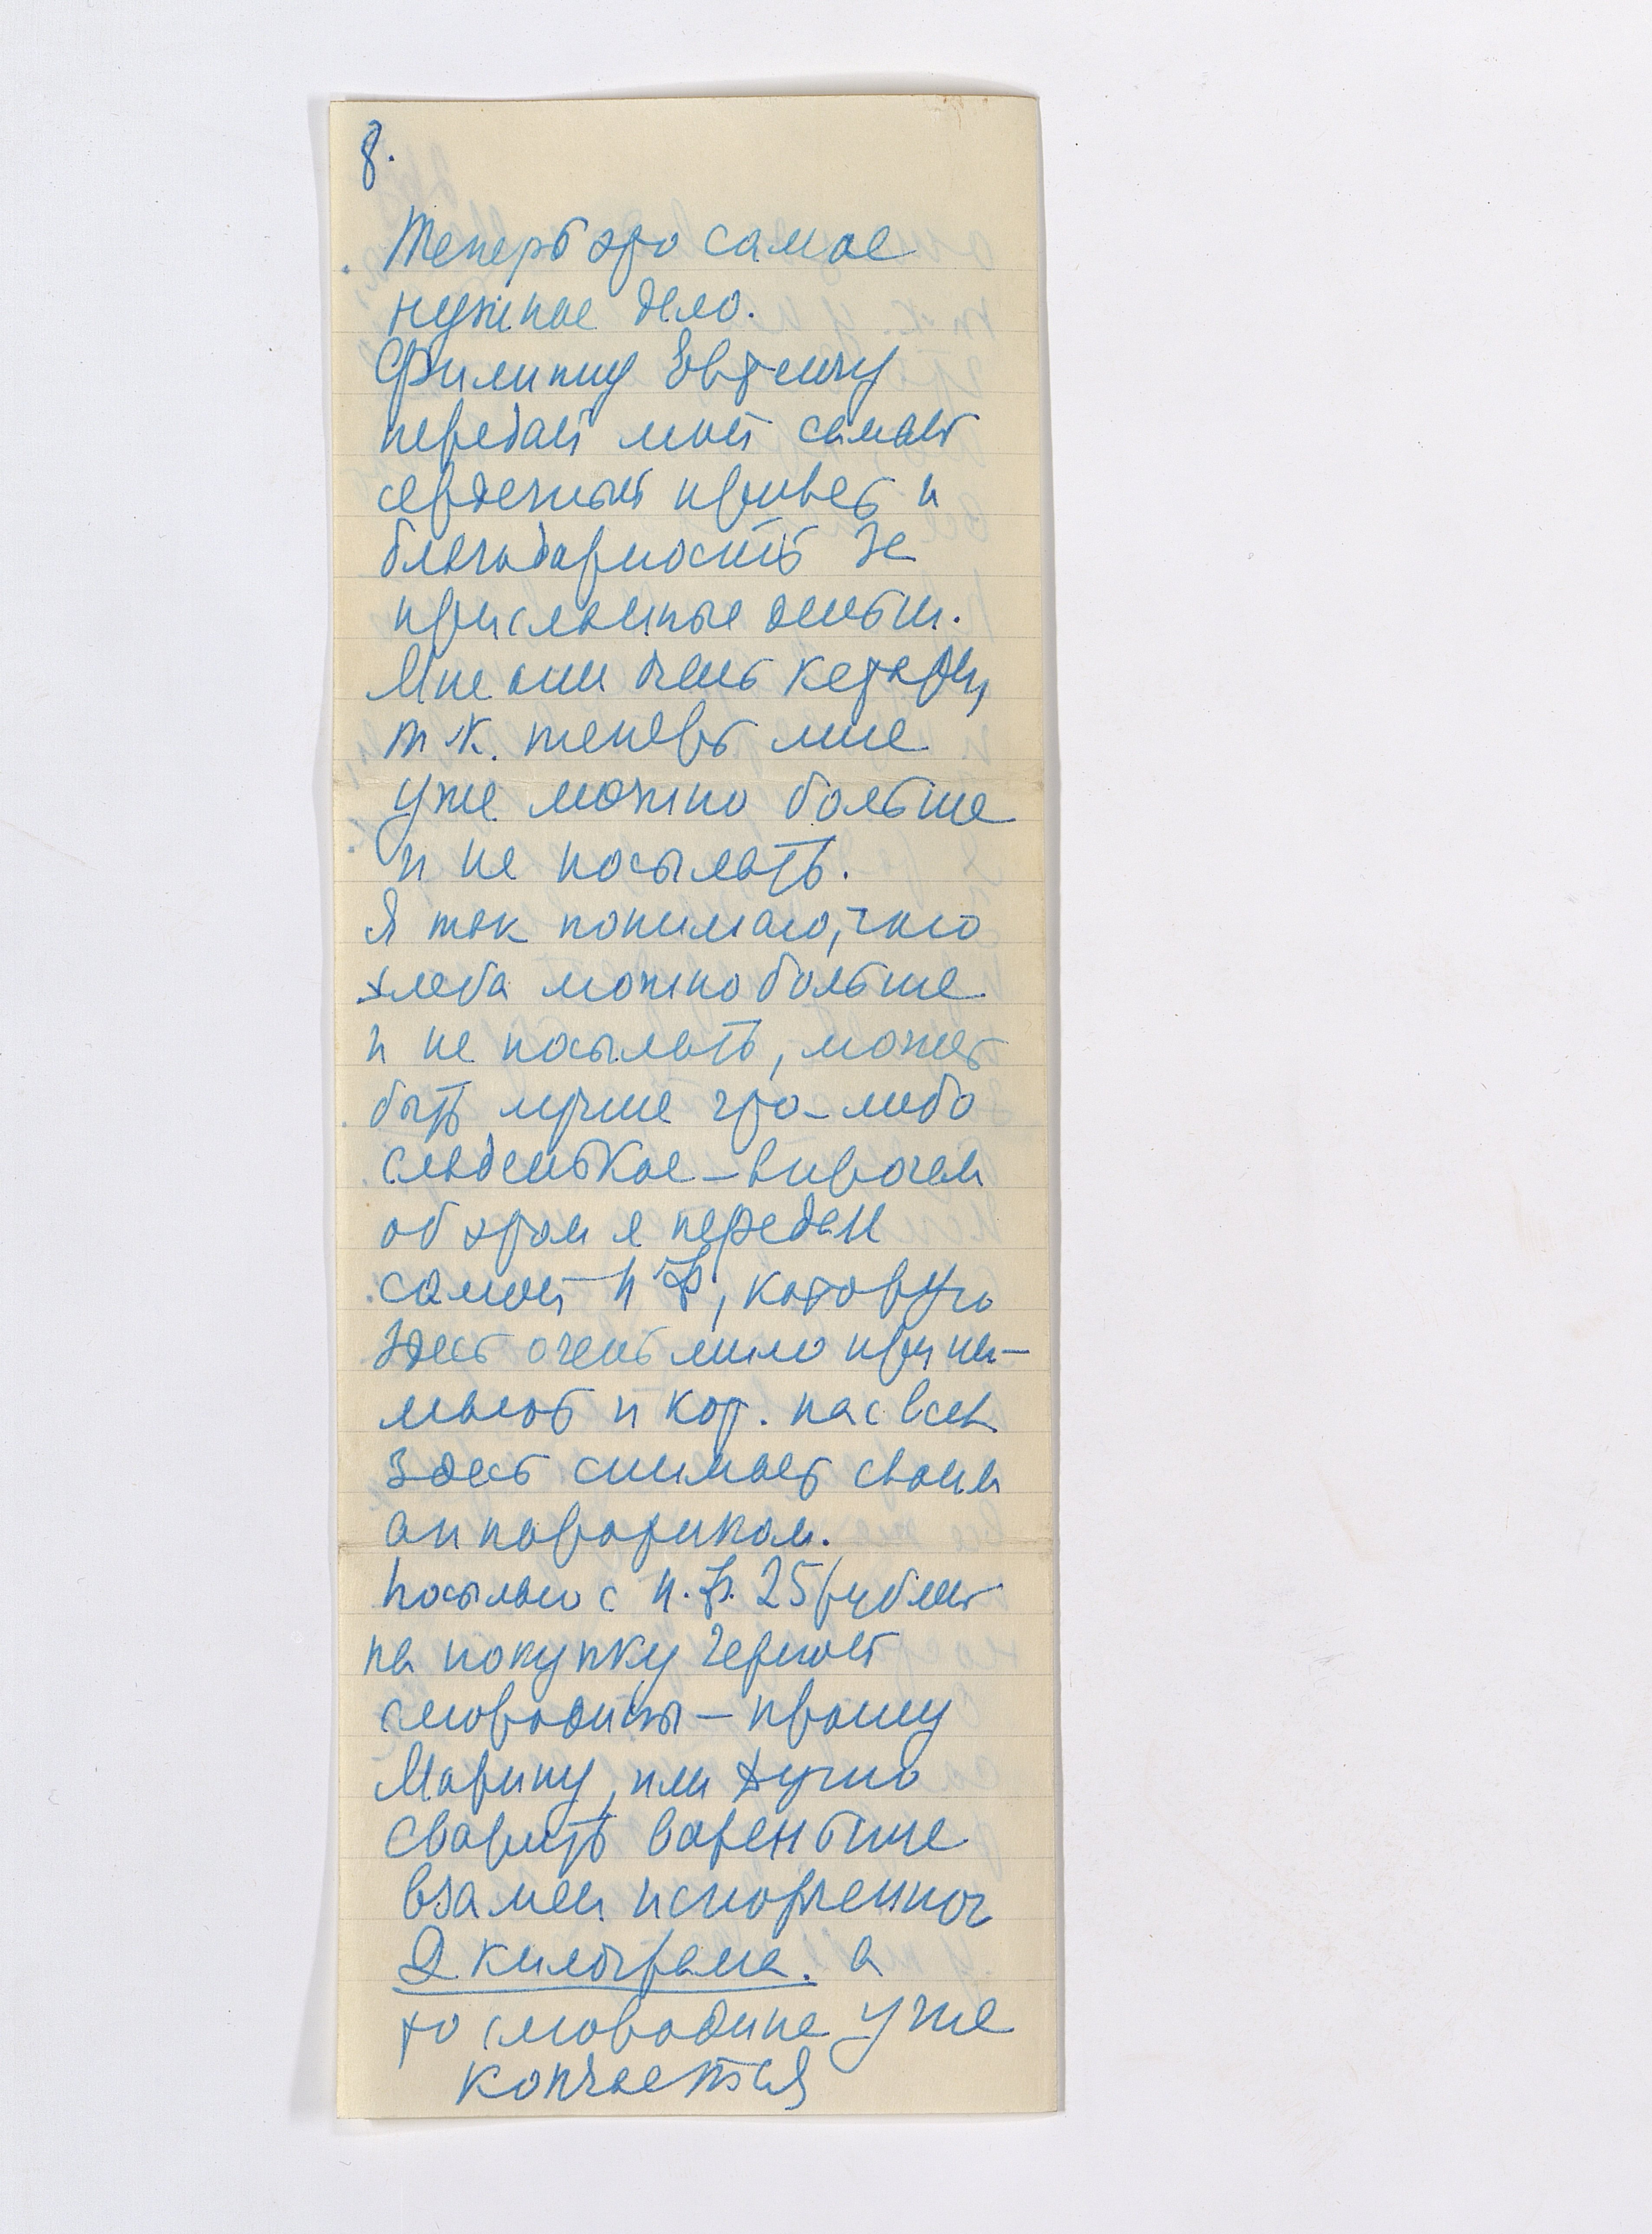 8.
Теперь это самое
нужное дело.
Филиппу Евтеичу
передай мой самый
сердечный привет и
благодарность за
присланные деньги.
Мне они очень кстати,
т.к. теперь мне
уже можно больше
и не посылать.
Я так понимаю, что
хлеба можно больше
и не посылать, может
быть лучше что-либо
сладенькое – впрочем
об этом я передам
самой Н Ф, которую
здесь очень мило прини-
мают и кот. нас всех
здесь снимает своим
аппаратиком.
Посылаю с Н.Ф. 25 рублей
на покупку черной
смородины – прошу
Марину, или
сварить вареньице
взамен испорченног
2 килограма. а
то смородина уже
кончается